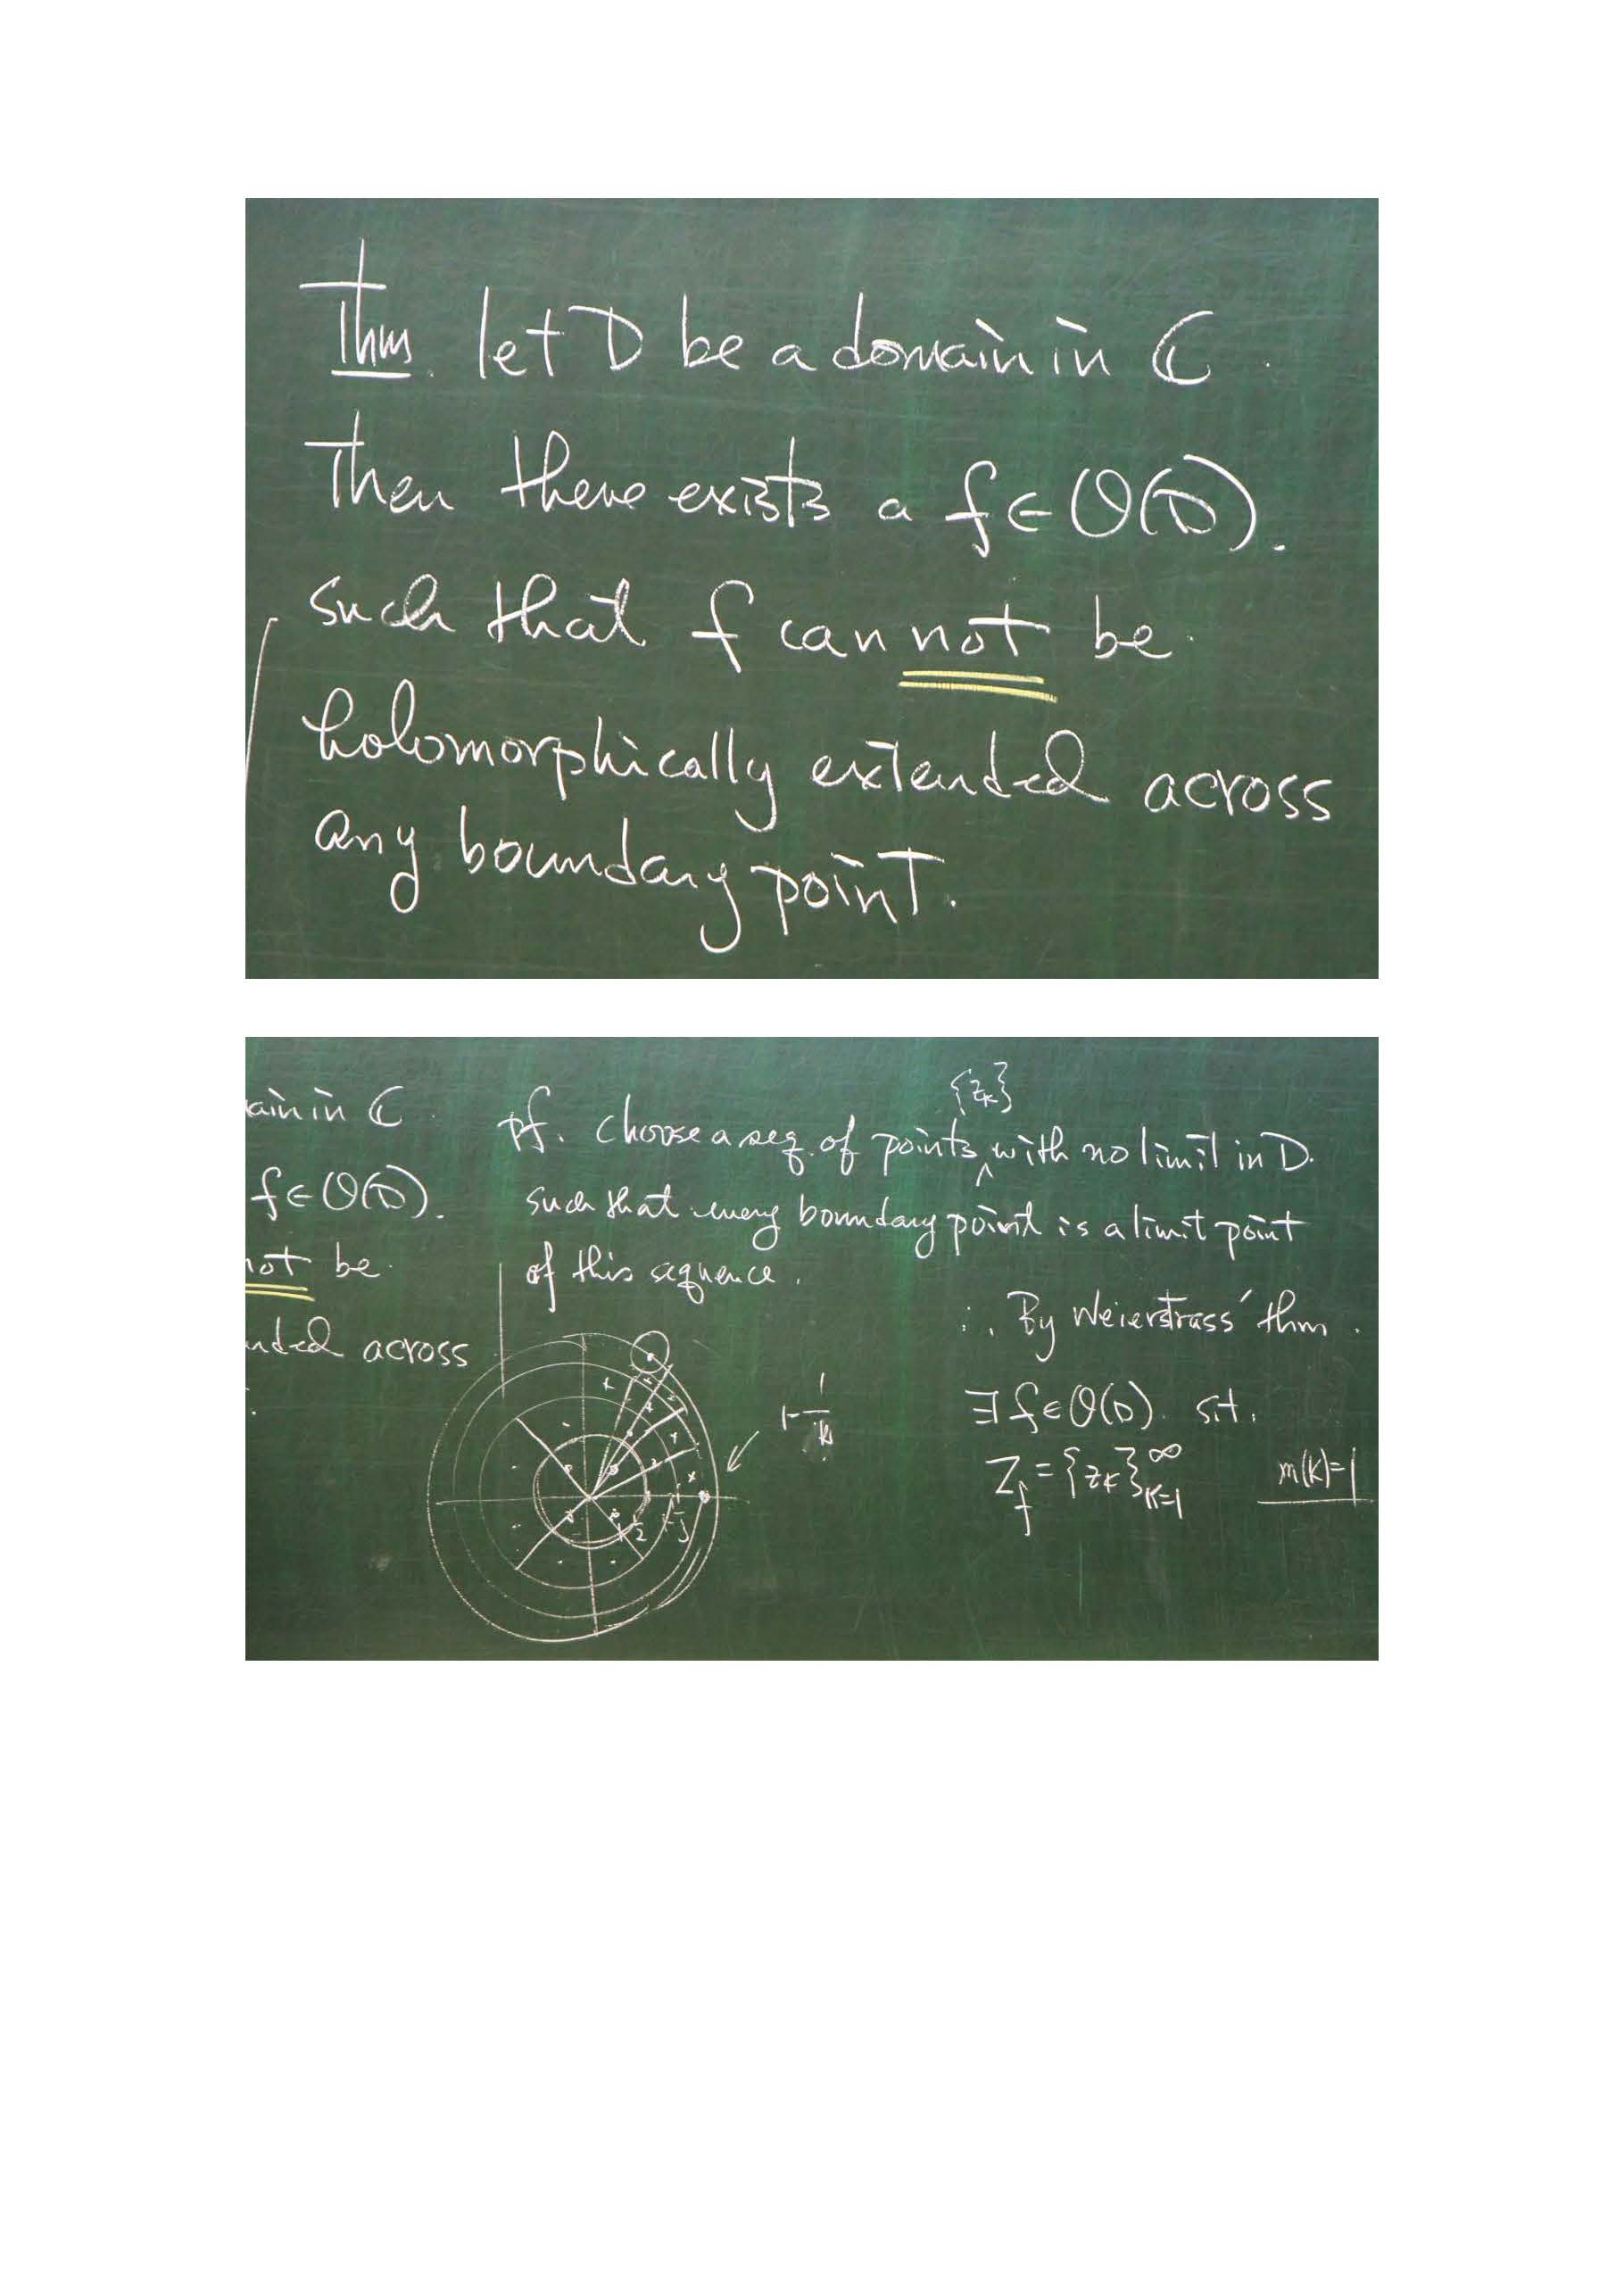 Thm. let D be a domain in ℂ.
Then there exists a f ∈ O(D).
such that f cannot be
holomorphically extended across
any boundary point.
ain in ℂ.
f ∈ O(D).
not be
nded across
pf. Choose a seq. of points {z_k} with no limit in D.
such that every boundary point is a limit point
of this sequence.
∴ By Weierstrass' thm.
∃ f ∈ O(D). s.t.
Z_f = {z_k}_{k=1}^∞
m(k)=1
1-1/k